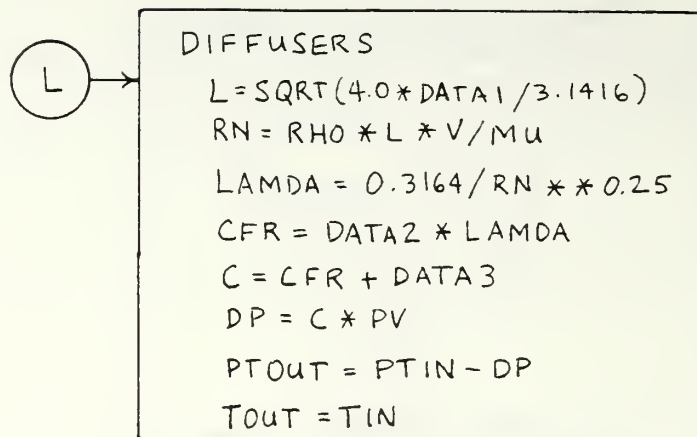 L
DIFFUSERS
L=SQRT(4.0*DATA1/3.1416)
RN = RHO * L * V/MU
LAMDA = 0.3164/RN * * 0.25
CFR = DATA2 * LAMDA
C = CFR + DATA3
DP = C * PV
PTOUT = PTIN - DP
TOUT = TIN